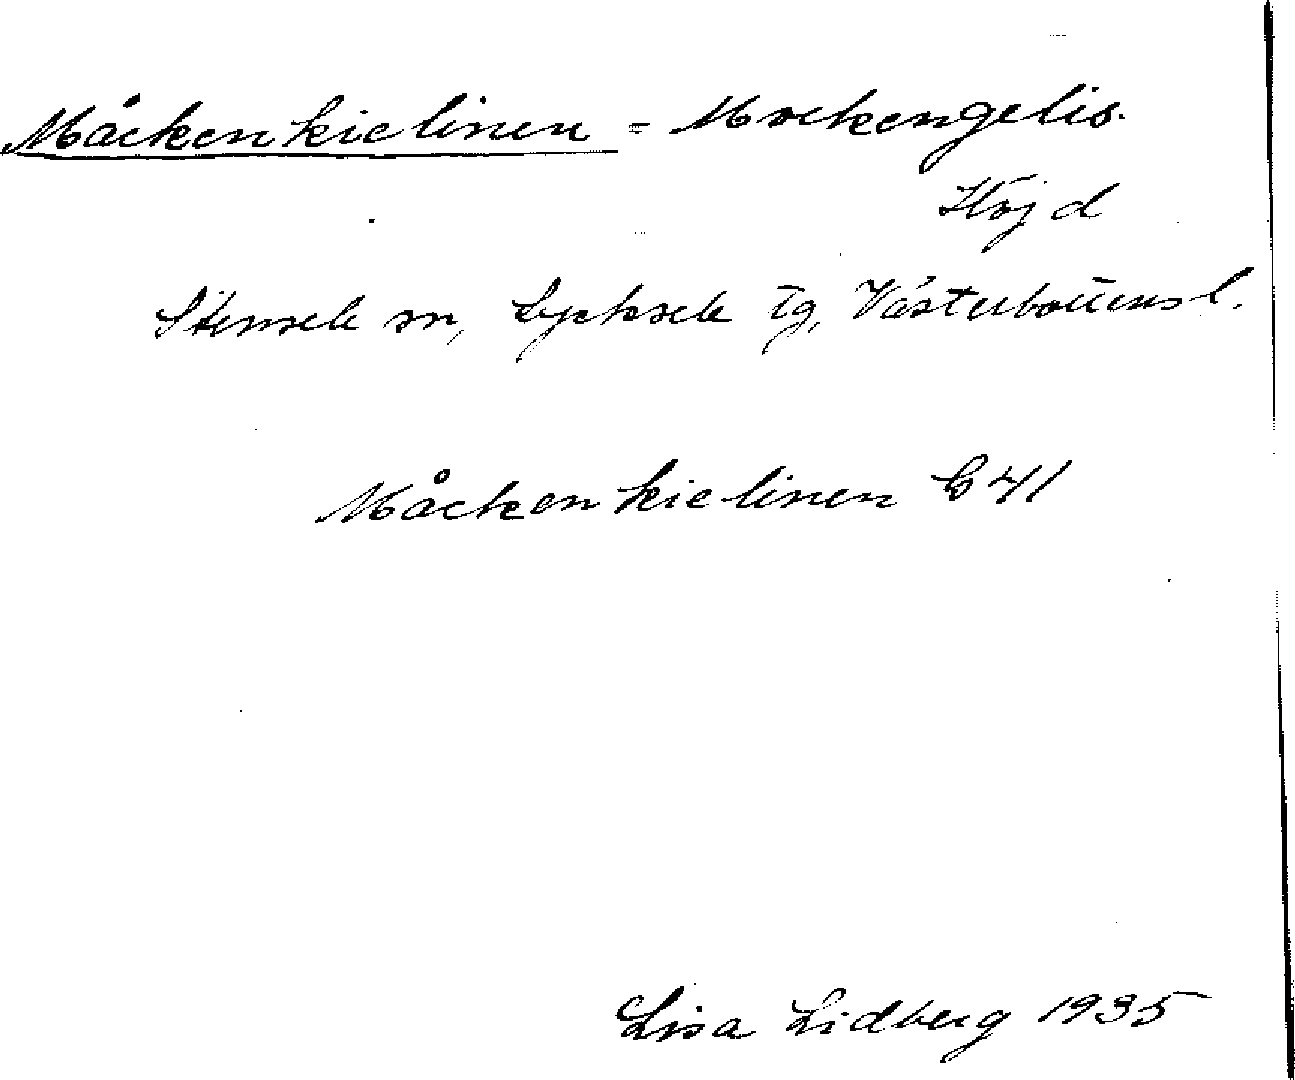 Måckenkielinen = Mockengelis.
Höjd
Stensele sn, Lycksele tg, Västerbottens l.
Måckenkielinen G 41
Lisa Lidberg 1935